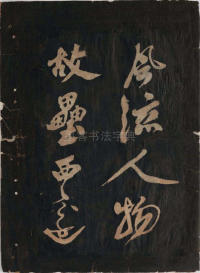 风流人物
故壘西邊